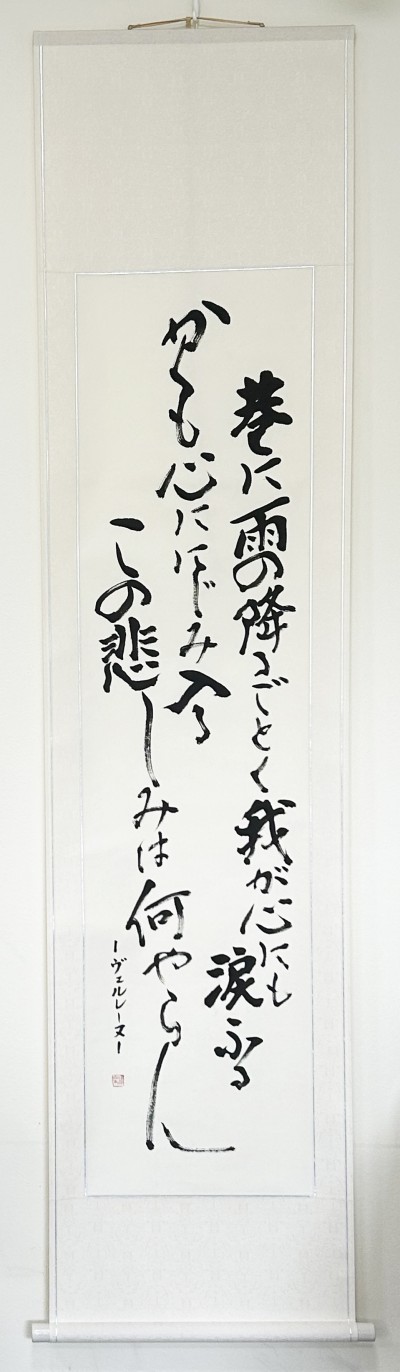 巷に雨の降るごとく我が心にも
涙ふる
かくも心ににじみ入る
この悲しみは何やらん
ーヴェルレーヌー